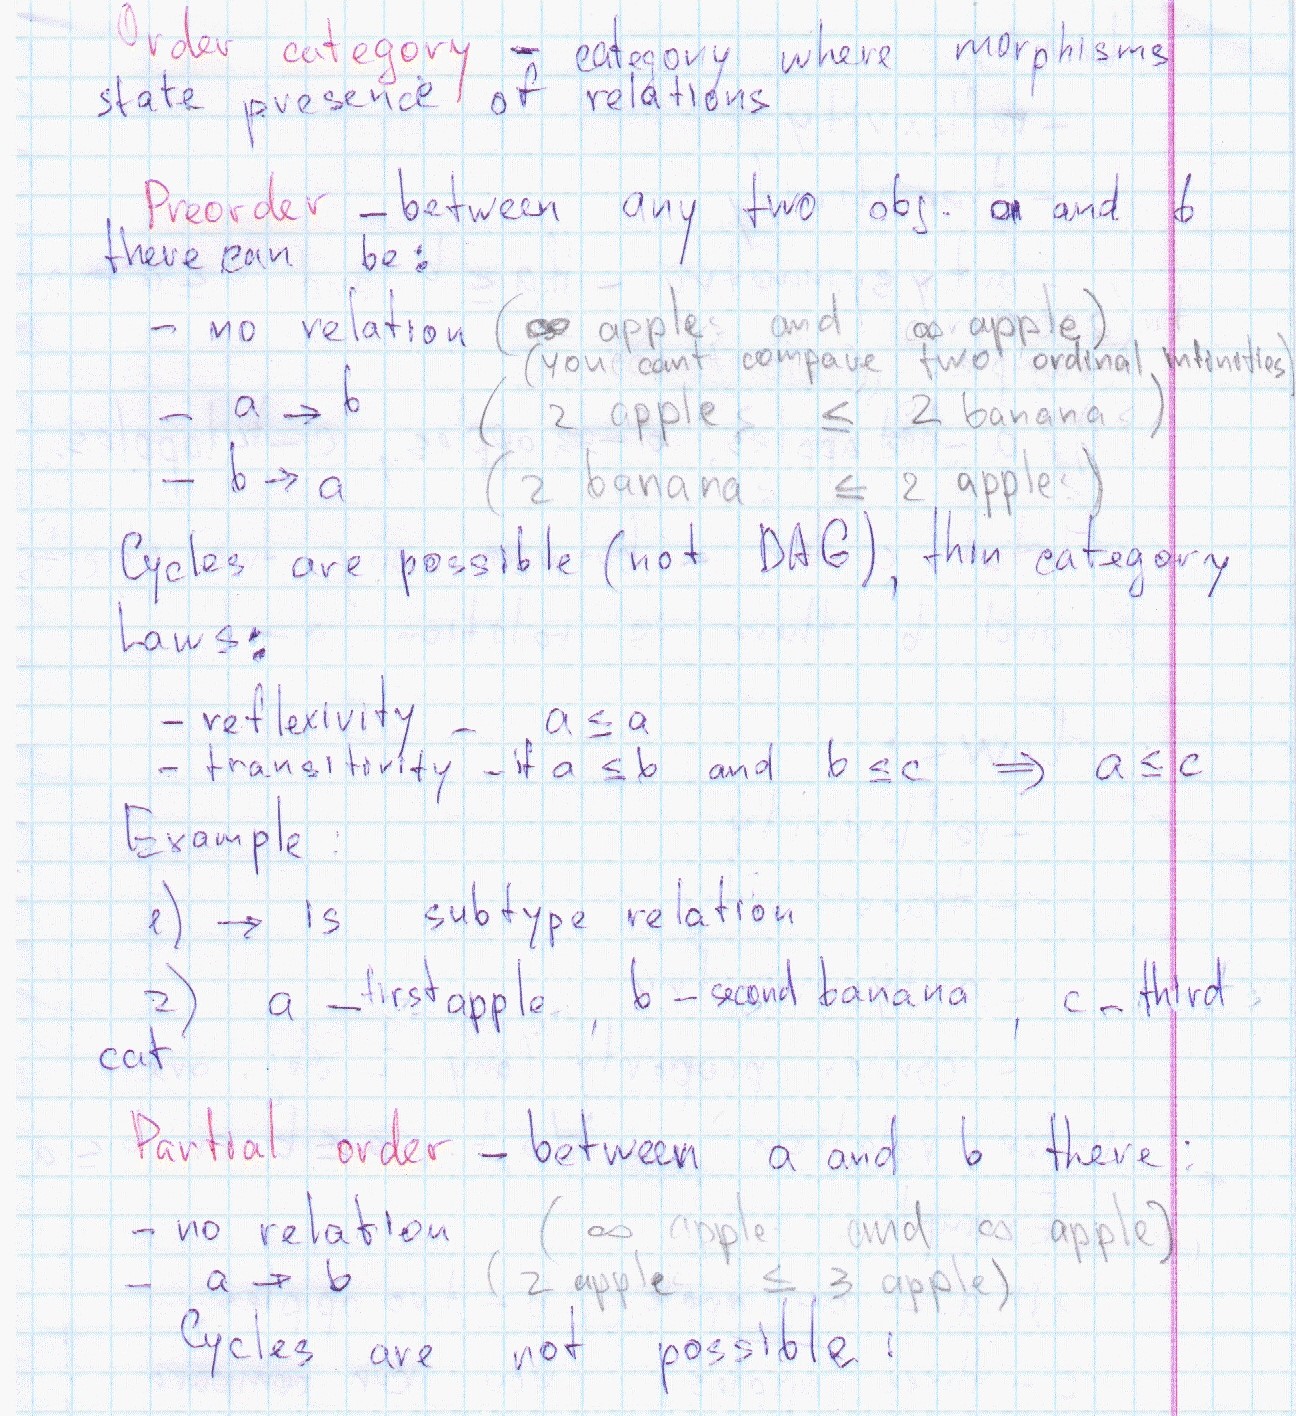 Order category - category where morphisms
state presence of relations
Preorder - between any two obj. a and b
there can be:
- no relation (∞ apple and ∞ apple)
(you cant compare two ordinal infinities)
- a → b (2 apple ≤ 2 banana)
- b → a (2 banana ≤ 2 apple)
Cycles are possible (not DAG), thin category
Laws:
- reflexivity - a ≤ a
- transitivity - if a ≤ b and b ≤ c ⇒ a ≤ c
Example:
1) → is subtype relation
2) a - first apple, b - second banana, c - third
cat
Partial order - between a and b there:
- no relation (∞ apple and ∞ apple)
- a → b (2 apple ≤ 3 apple)
Cycles are not possible: